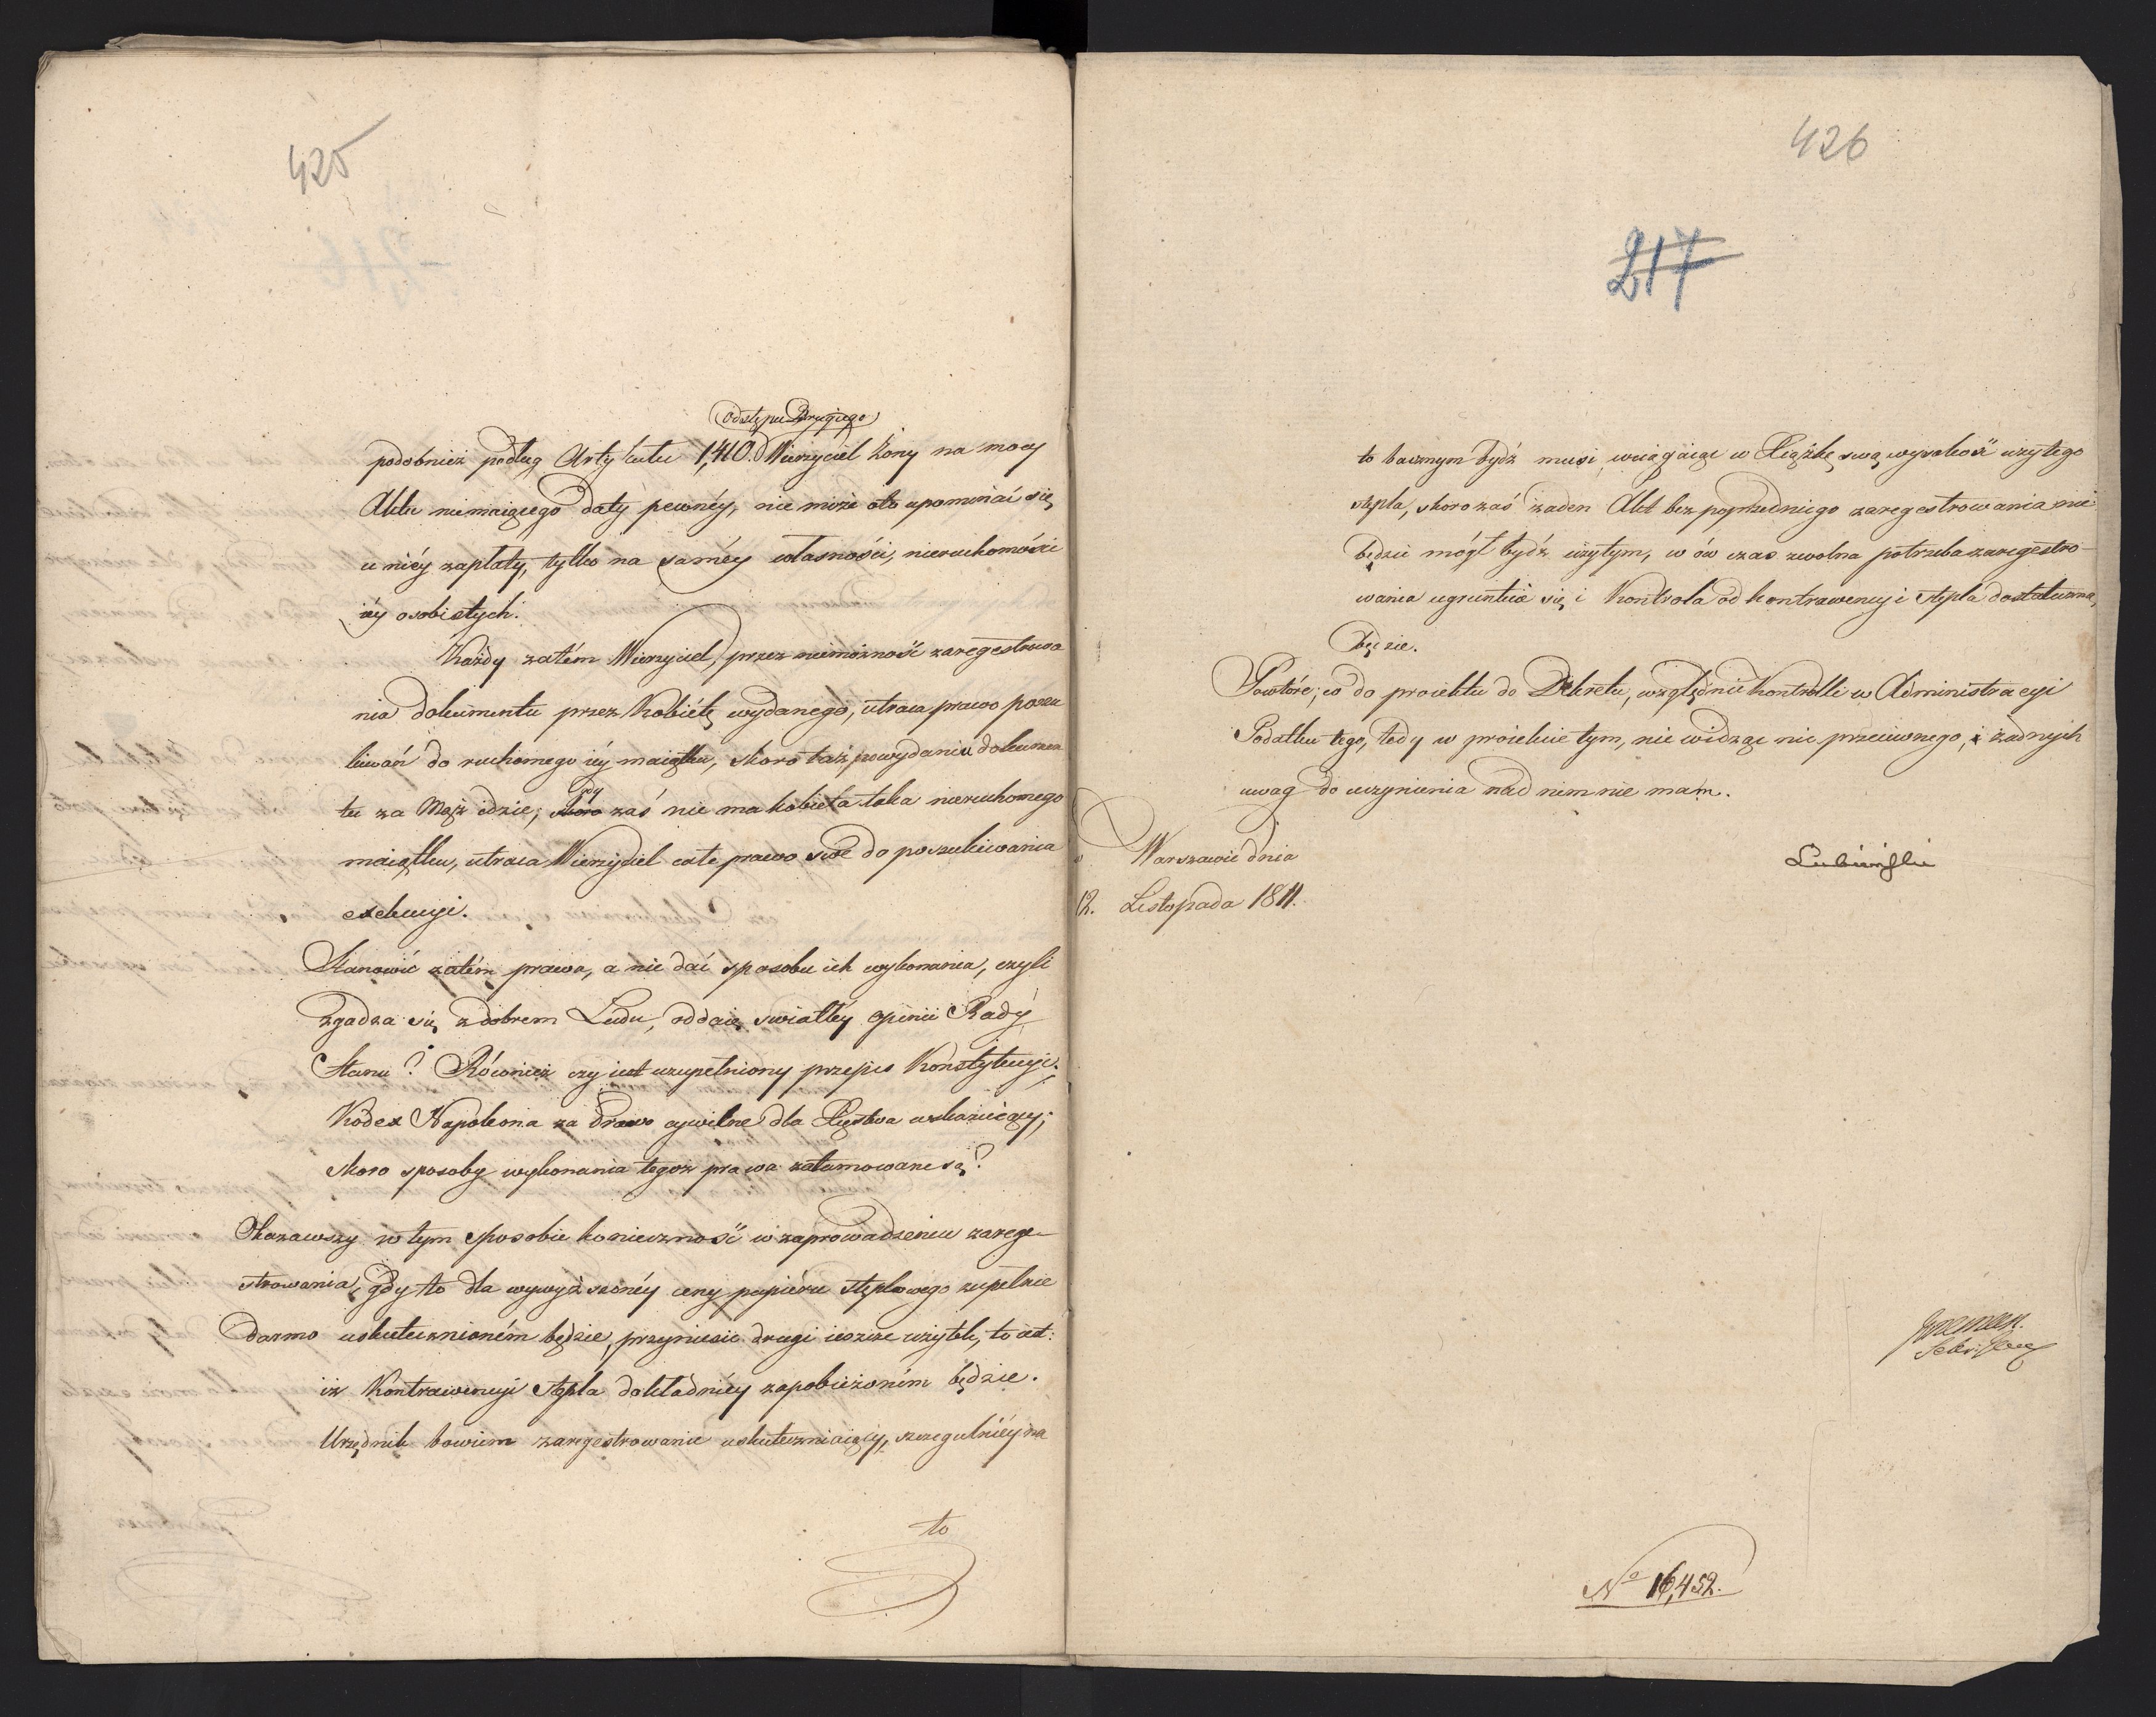 425
odstępu Drugiego
podobnież podług Artykułu 1,410. Wierzyciel Żony na mocy
Aktu niemaiącego daty pewnéy, nie może oto upominać się
u niéy zapłaty, tylko na saméy własności, nieruchomości
iéy osobistych.
Każdy zatém Wierzyciel, przez niemożność zaregestrowa
nia dokumentu przez Kobiétę wydanego, utraca prawo poszu
kiwań do ruchomego iéy maiątku, skoro taż po wydaniu dokumen
tu za Mąż idzie; gdy zaś nie ma kobieta taka nieruchomego
maiątku, utraca Wierzyciel całe prawo swe do poszukiwania
exekucyi.
Stanowić zatém prawa, a nie dać sposobu ich wykonania, czyli
zgadza się z dobrem Ludu, oddaię światłéy opinii Rady
Stanu? Również czy iest uzupełniony przepis Konstytucyi;
Kodex Napoleona za Prawo cywilne dla Xięstwa wskazuiący;
skoro sposoby wykonania tegoż prawa zatamowane są?
Okazawszy w tym sposobie konieczność w zaprowadzeniu zarege-
strowania, gdy to dla wywyższonéy ceny papiéru stęplowego zupełnie
darmo uskutecznioném będzie, przyniesie drugi ieszcze użytek, to iest:
iż Kontrawencyi stępla dokładniéy zapobieżoném będzie.
Urzędnik bowiem zaregestrowanie uskuteczniaiący, szczegulniéy na
to
426
217
to bacznym bydź musi wciągaiąc w Xiążkę swą wysokość użytego
stępla, skoro zaś żaden Akt bez poprzedniego zaregestrowania nie
będzie mógł bydź użytym, w ów czas zwolna potrzeba zaregestro-
wania ugruntuie się i Kontrola od kontrawencyi stępla dostateczna
będzie.
Powtóre; co do proiektu do Dekretu, względnie Kontrolli w Administracyi
Podatku tego, tedy w proiekcie tym, nie widząc nic przeciwnego, i żadnych
uwag do uczynienia nad nim nie mam.
w Warszawie dnia
12. Listopada 1811.
Lubiński
No 16,452.